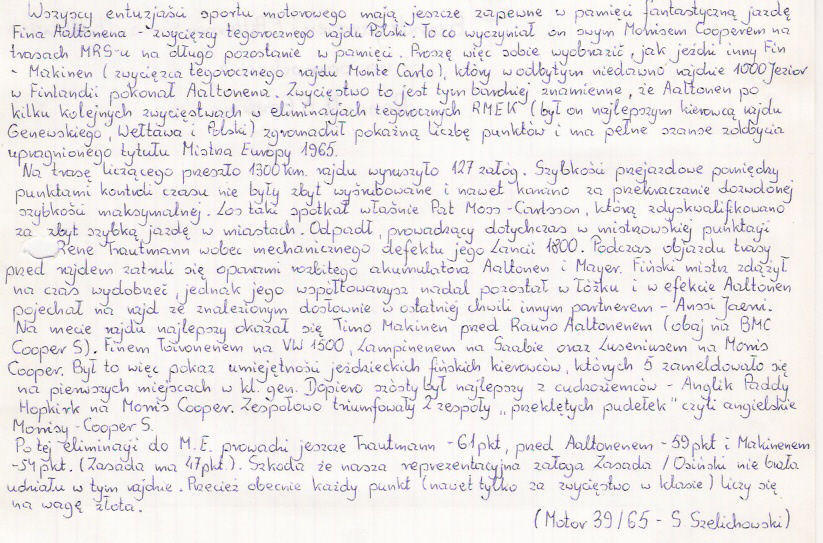 Wszyscy entuzjaści sportu motorowego mają jeszcze zapewne w pamięci fantastyczną jazdę
Fina Aaltonena - zwycięzcy tegorocznego rajdu Polski. To co wyczyniał on swym Morrisem Cooperem na
trasach MRS-u na długo pozostanie w pamięci. Proszę więc sobie wyobrazić, jak jeździ inny Fin
- Makinen (zwycięzca tegorocznego rajdu Monte Carlo), który w odbytym niedawno rajdzie 1000 Jezior
w Finlandii pokonał Aaltonena. Zwycięstwo to jest tym bardziej znamienne, że Aaltonen po
kilku kolejnych zwycięstwach w eliminacjach tegorocznych RMEK (był on najlepszym kierowcą rajdu
Genewskiego, Wełtawa i Polski) zgromadził pokaźną liczbę punktów i ma pełne szanse zdobycia
upragnionego tytułu Mistrza Europy 1965.
Na trasę liczącego przeszło 1300 km. rajdu wyruszyło 127 załóg. Szybkości przejazdowe pomiędzy
punktami kontroli czasu nie były zbyt wyśrubowane i nawet karano za przekraczanie dozwolonej
szybkości maksymalnej. Los taki spotkał właśnie Pat Moss-Carlsson, którą zdyskwalifikowano
za zbyt szybką jazdę w miastach. Odpadł, prowadzący dotychczas w mistrzowskiej punktacji
Rene Trautmann wobec mechanicznego defektu jego Lancii 1800. Podczas objazdu trasy
przed rajdem zatruli się oparami rozbitego akumulatora Aaltonen i Mayer. Fiński mistrz zdążył
na czas wydobrzeć, jednak jego współtowarzysz nadal pozostał w łóżku i w efekcie Aaltonen
pojechał na rajd ze znalezionym dosłownie w ostatniej chwili innym partnerem - Anssi Jaerni.
Na mecie rajdu najlepszy okazał się Timo Makinen przed Rauno Aaltonenem (obaj na BMC
Cooper S). Finem Toivonenem na VW 1500, Lampinenem na Saabie oraz Luseniusem na Morris
Cooper. Był to więc pokaz umiejętności jeździeckich fińskich kierowców, których 5 zameldowało się
na pierwszych miejscach w kl. gen. Dopiero szósty był najlepszy z cudzoziemców - Anglik Paddy
Hopkirk na Morris Cooper. Zespołowo triumfowały 2 zespoły „przeklętych pudełek" czyli angielskie
Morrisy-Cooper S.
Po tej eliminacji do M.E. prowadzi jeszcze Trautmann - 61 pkt, przed Aaltonenem - 59 pkt i Makinenem
- 54 pkt. (Zasada ma 47 pkt.). Szkoda że nasza reprezentacyjna załoga Zasada / Osiński nie brała
udziału w tym rajdzie. Przecież obecnie każdy punkt (nawet tylko za zwycięstwo w klasie) liczy się
na wagę złota.
(Motor 39/65 - S. Szelichowski)